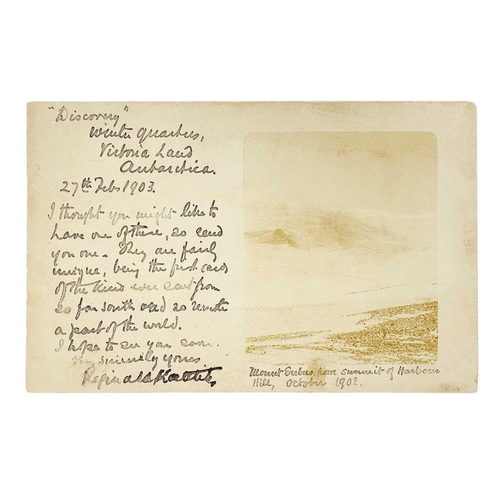 "Discovery"
Winter Quarters,
Victoria Land
Antarctica.
27th Feb 1903.
I thought you might like to
have one of these, so send
you one. They are fairly
unique, being the first cards
of the kind ever sent from
so far south and so remote
a part of the world.
I hope to see you soon.
sincerely yours
Reginald Koettlitz
Mount Erebus, from summit of Harbour
Hill, October 1902.